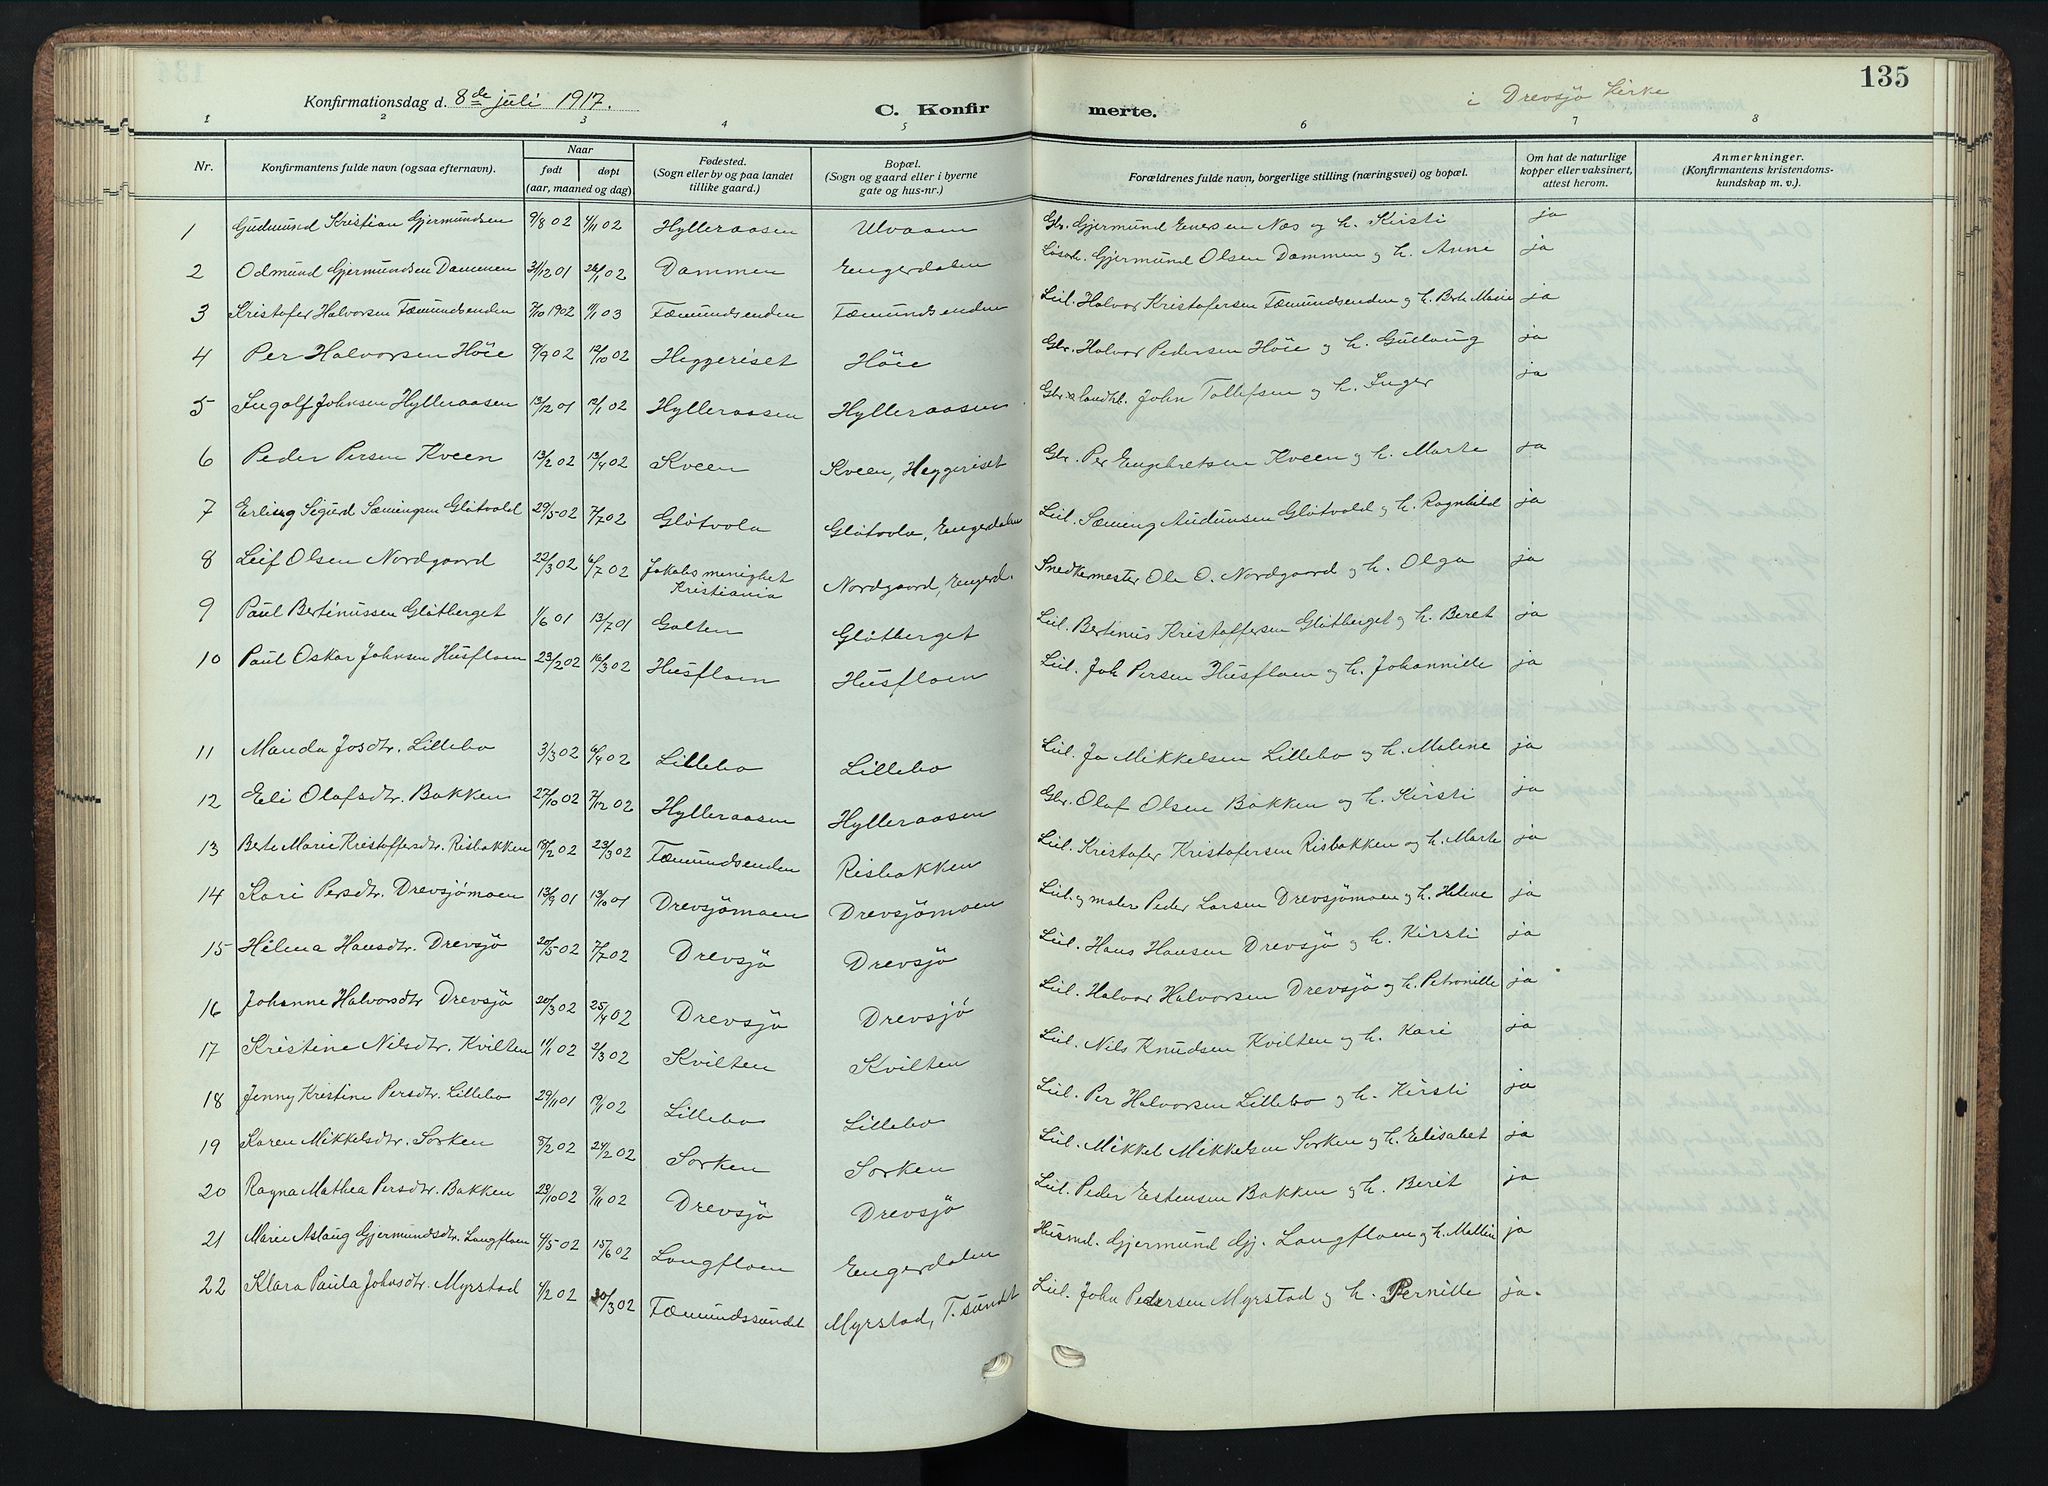 135
Konfirmationsdag d. 8de juli 1917.
C. Konfirmerte.
i Drevsjø kirke
1 2 3 4 5 6 7 8
Nr. Konfirmantens fulde navn (ogsaa efternavn). Naar født døpt (aar, maaned og dag) Fødested. (Sogn eller by og paa landet tillike gaard.) Bopæl. (Sogn og gaard eller i byerne gate og hus-nr.) Forældrenes fulde navn, borgerlige stilling (næringsvei) og bopæl. Om hat de naturlige kopper eller vaksinert, attest herom. Anmerkninger. (Konfirmantens kristendomskundskap m. v.).
1 Gudmund Kristian Gjermundsen 9/8 02 4/11 02 Hylleraasen Ulvaaen Gbr. Gjermund Enersen Næs og h. Kirsti ja
2 Odmund Gjermundsen Dammen 31/12 01 26/1 02 Dammen Engerdalen Gjermund Olsen Dammen og h. Anne ja
3 Kristofer Halvorsen Fæmundsenden 7/10 1902 11/1 03 Fæmundsenden Fæmundsenden Lül. Halvor Kristofersen Fæmundsenden og h. Berte Marie ja
4 Per Halvorsen Høie 9/9 02 12/10 02 Heggeriset Høie Gbr. Halvor Pedersen Høie og h. Gullaug ja
5 Ingolf Johnsen Hylleraasen 13/12 01 12/1 02 Hylleraasen Hylleraasen Gbr. & landhl. John Tollefsen og h. Inger ja
6 Peder Persen Kveen 13/2 02 13/4 02 Kveen Kveen, Heggeriset Gbr. Per Engebretsen Kveen og h. Marte ja
7 Erling Sigurd Sæmingsen Gløtvold 29/5 02 7/7 02 Gløtvola Gløtvola, Engerdalen Lül. Sæming Audunsen Gløtvold og h. Ragnhild ja
8 Leif Olsen Nordgaard 22/3 02 6/7 02 Jakobs menighet Kristiania Nordgaard, Engerd. Snedkermester Ole O. Nordgaard og h. Olga ja
9 Paul Bertinussen Gløtberget 1/6 01 13/7 01 Galten Gløtberget Lül. Bertinus Kristoffersen Gløtberget og h. Beret ja
10 Paul Oskar Johnsen Husfloen 23/2 02 16/3 02 Husfloen Husfloen Lül. Joh Persen Husfloen og h. Johannille ja
11 Manda Josdtr. Lillebo 3/3 02 6/4 02 Lillebo Lillebo Lül. Jo Mikkelsen Lillebo og h. Maline ja
12 Eli Olafsdtr. Bakken 27/10 02 7/12 02 Hylleraasen Hylleraasen Gbr. Olaf Olsen Bakken og h. Kirsti ja
13 Berte Marie Kristoffersdtr. Risbakken 18/2 02 23/3 02 Fæmundsenden Risbakken Lül. Kristofer Kristofersen Risbakken og h. Marte ja
14 Kari Persdtr. Drevsjømoen 13/9 01 13/10 01 Drevsjømoen Drevsjømoen Lül. og maler Peder Larsen Drevsjømoen og h. Helene ja
15 Hilma Hansdtr. Drevsjø 20/5 02 7/7 02 Drevsjø Drevsjø Lül. Hans Hansen Drevsjø og h. Kirsti ja
16 Johanne Halvorsdtr Drevsjø 20/3 02 25/4 02 Drevsjø Drevsjø Lül. Halvor Halvorsen Drevsjø og h. Petronille ja
17 Kristine Nilsdtr. Kvilten 11/1 02 2/3 02 Kvilten Kvilten Lül. Nils Knudsen Kvilten og h. Kari ja
18 Jenny Kristine Persdtr. Lillebo 29/11 01 19/1 02 Lillebo Lillebo Lül. Per Halvorsen Lillebo og h. Kirsti ja
19 Karen Mikkelsdtr. Sorken 5/2 02 24/2 02 Sorken Sorken Lül. Mikkel Mikkelsen Sorken og h. Elisabet ja
20 Ragna Mathea Persdtr. Bakken 23/10 02 9/11 02 Drevsjø Drevsjø Lül. Peder Estensen Bakken og h. Berit ja
21 Marie Aslaug Gjermundsdtr. Langfloen 4/5 02 15/6 02 Langfloen Engerdalen Husmd. Gjermund Gj. Langfloen og h. Mallin ja
22 Klara Paula Johnsdtr. Myrstad 4/2 02 30/3 02 Fæmundssundet Myrstad, F. sundet Lül. John Pedersen Myrstad og h. Pernille ja.